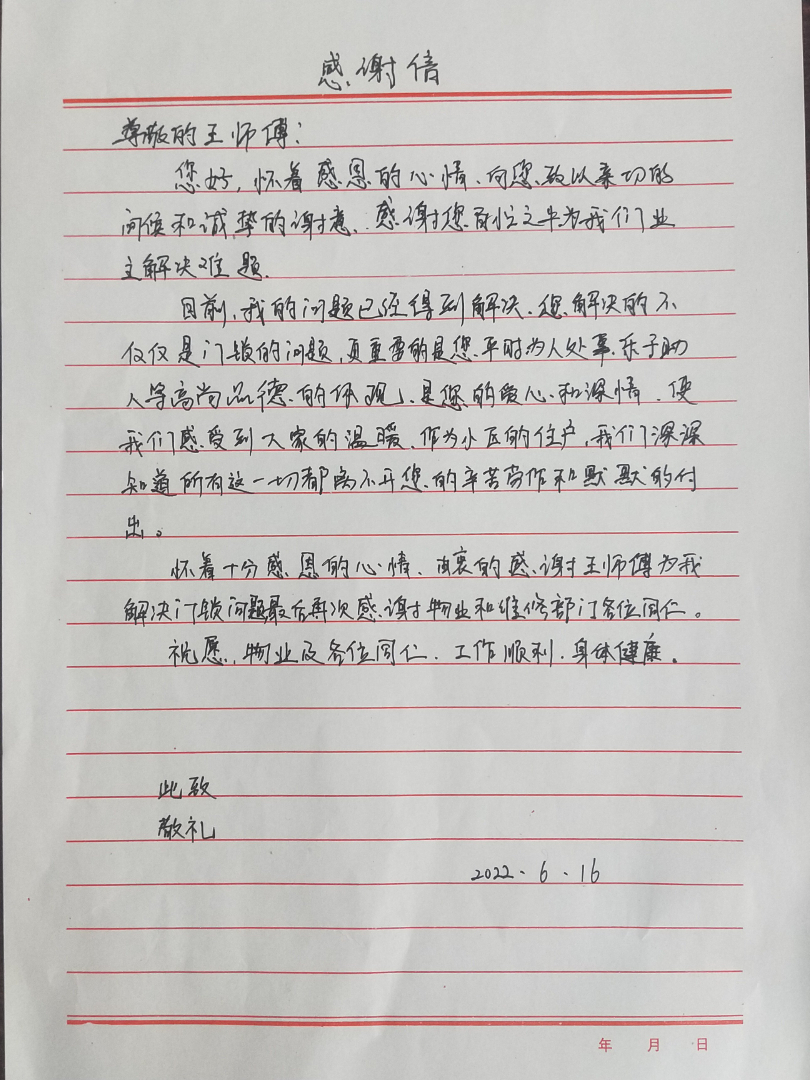 感谢信
尊敬的王师傅：
您好，怀着感恩的心情、向您致以亲切的
问候和诚挚的谢意、感谢您百忙之中为我们业
主解决难题.
目前，我的问题已经得到解决、您解决的不
仅仅是门锁的问题，更重要的是您平时为人处事、乐于助
人等高尚品德的体现，是您的爱心和深情、使
我们感受到大家的温暖、作为小区的住户，我们深深
知道所有这一切都离不开您的辛苦劳作和默默的付
出。
怀着十分感恩的心情、由衷的感谢王师傅为我
解决门锁问题最后再次感谢物业和维修部门各位同仁。
祝愿，物业及各位同仁、工作顺利、身体健康。
此致
敬礼
2022.6.16
年 月 日